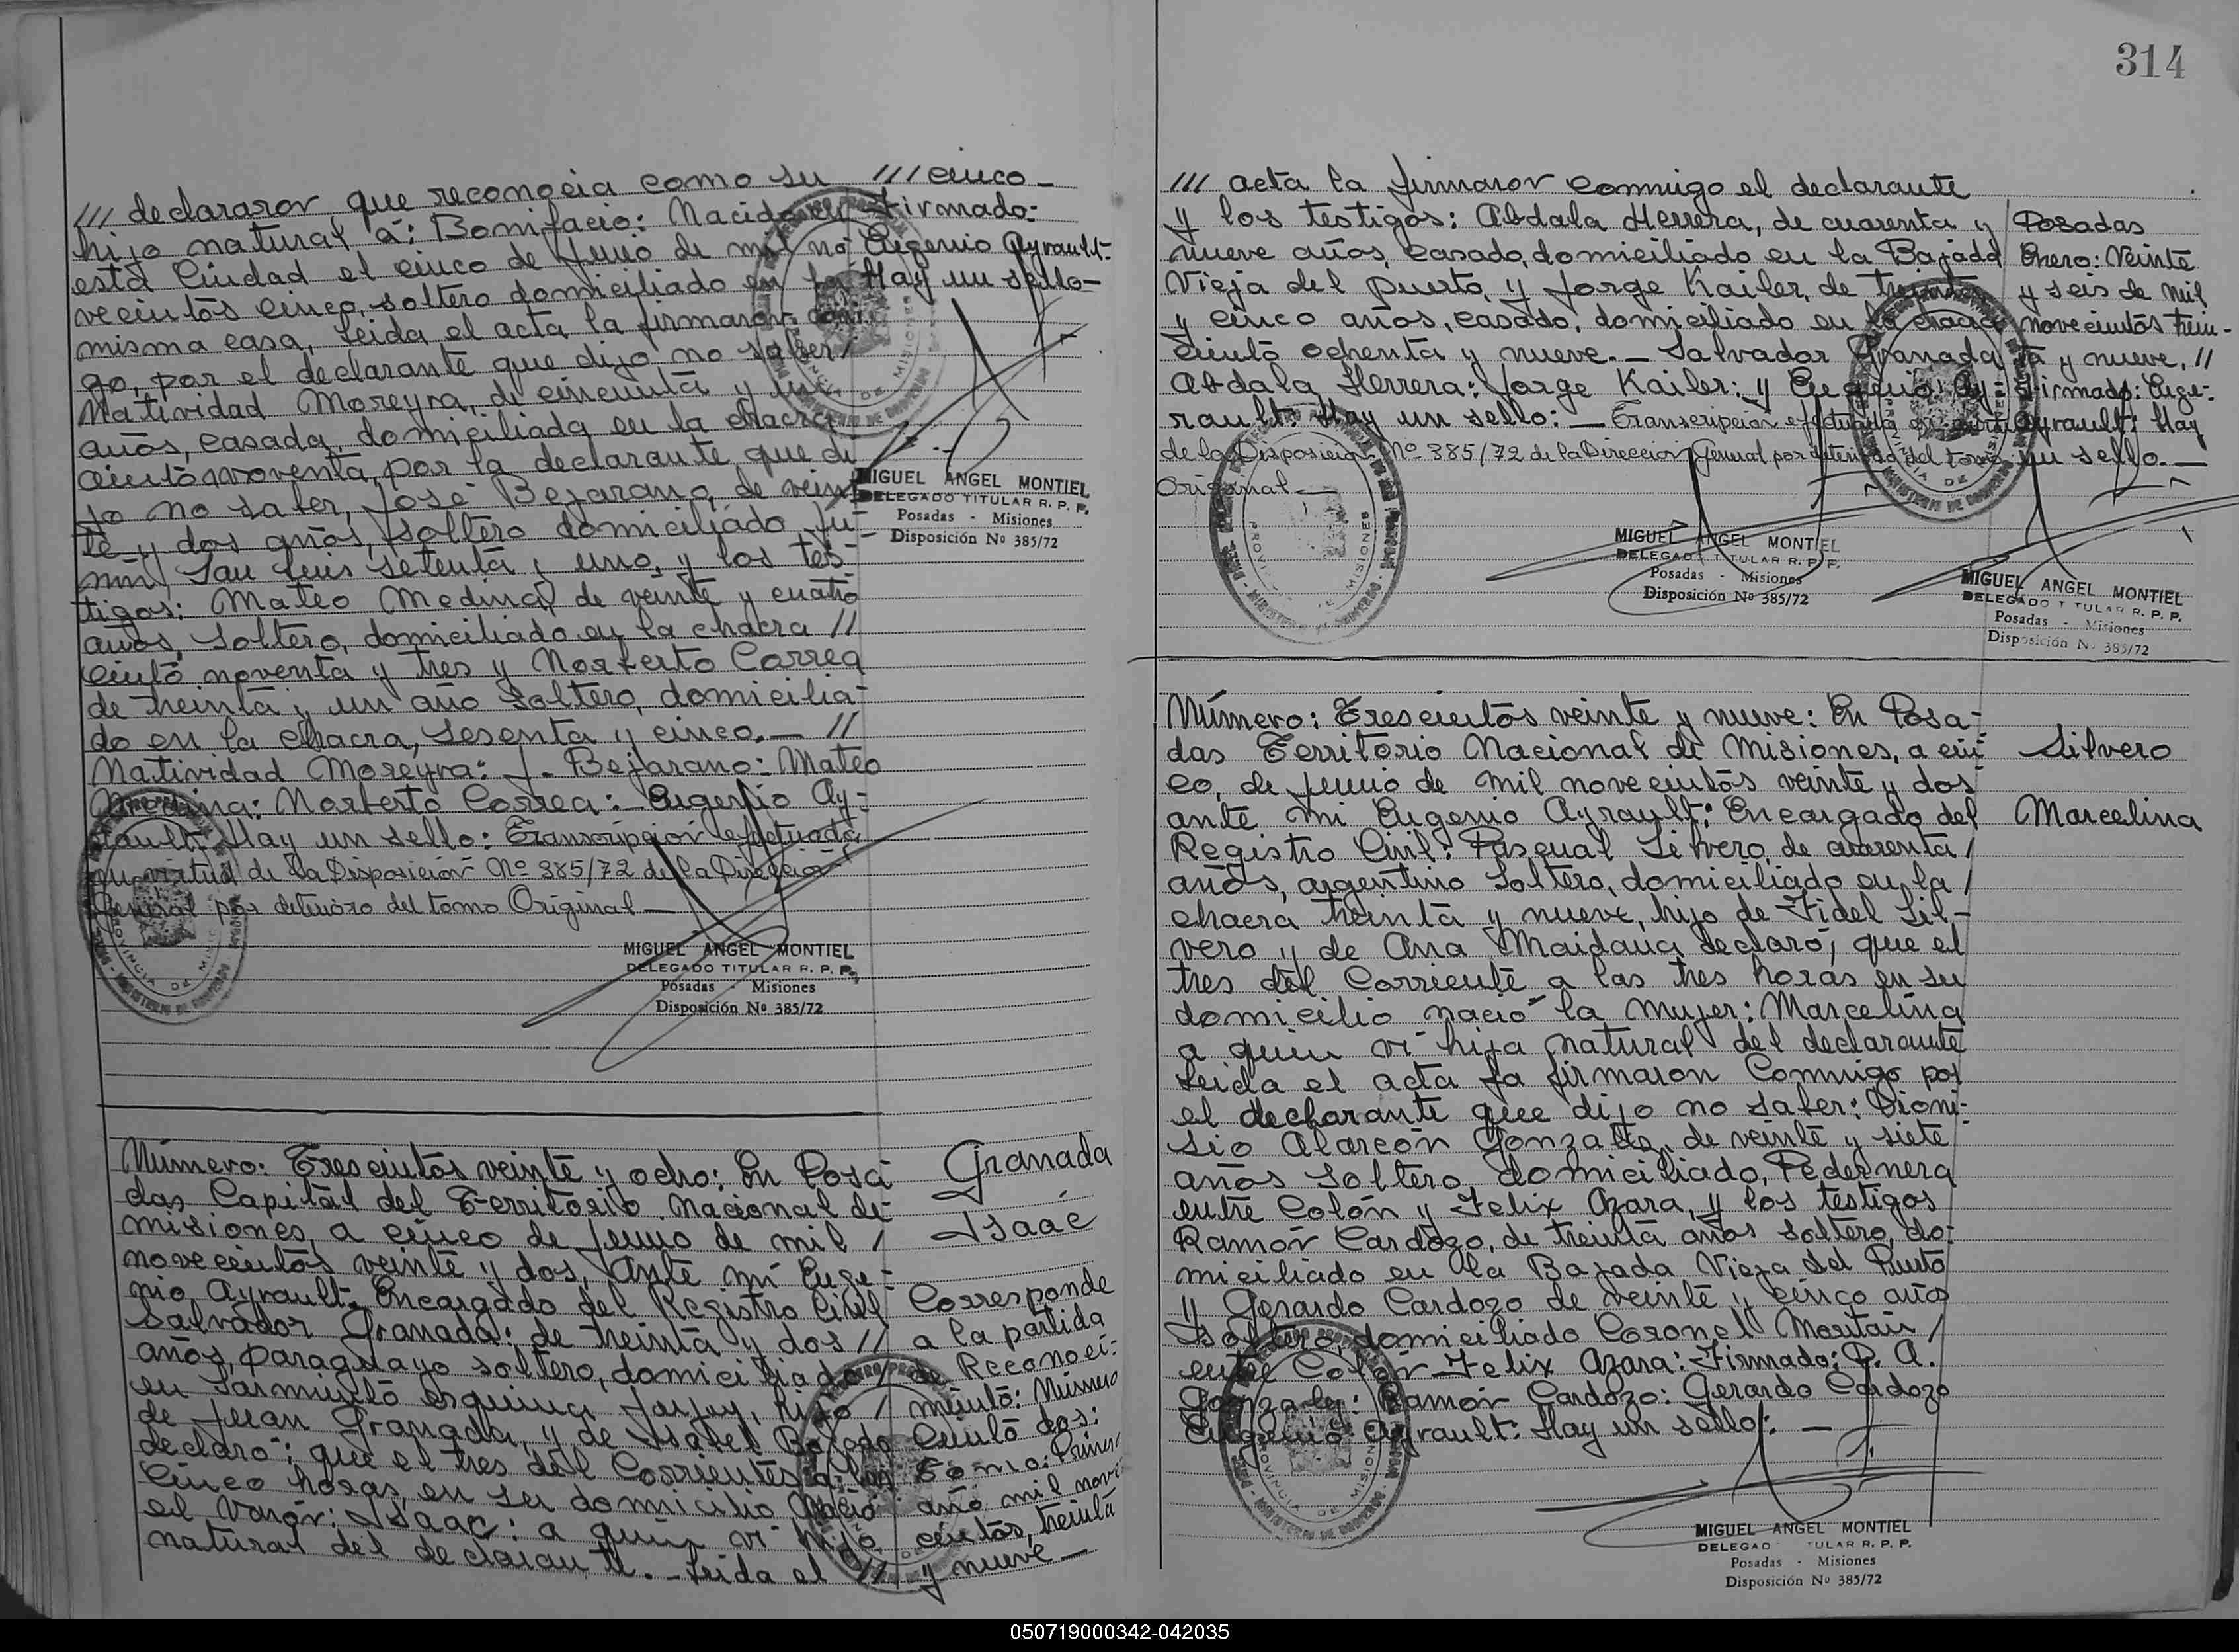 314
/// declararon, que reconocia como su
hijo natural á: Bonifacio: Nacido en
esta Ciudad el cinco de Junio de mil no-
vecientos cinco, soltero domiciliado en la
misma casa, Leida el acta la firmaron conmi
go, por el declarante que dijo no saber/
Natividad Moreyra, de cincuenta y un
años, casada, domiciliada en la chacra
ciento noventa, por la declarante que di
jo no saber, José Bejarano, de vein
te y dos años, soltero domiciliado Ju-
nin, San Luis setenta y uno, y los tes-
tigos: Mateo Medina, de veinte y cuatro
años, soltero, domiciliado en la chacra //
ciento noventa y tres y Norberto Correa
de treinta y un año soltero, domicilia-
do en la chacra, sesenta y cinco. — //
Natividad Moreyra: J. Bejarano: Mateo
Medina: Norberto Correa: Eugenio Ay-
rault: Hay un sello: Transcripción efectuada
en virtud de la Disposición Nº 385/72 de la Dirección
General por deterioro del tomo Original —
/// cinco —
Firmado:
Eugenio Ayrault:
Hay un sello —
MIGUEL ANGEL MONTIEL
DELEGADO TITULAR R. P. P.
Posadas - Misiones
Disposición Nº 385/72
MIGUEL ANGEL MONTIEL
DELEGADO TITULAR R. P. P.
Posadas - Misiones
Disposición Nº 385/72
Número: Trescientos veinte y ocho: En Posa
das Capital del Territorio Nacional de
misiones, a cinco de Junio de mil /
novecientos veinte y dos, Ante mí Euge-
nio Ayrault: Encargado del Registro Civil
Salvador Granada: de treinta y dos //
años, paraguayo soltero, domiciliado /
en Sarmiento esquina Jujuy, hijo /
de Juan Granada, y de Isabel
declaró: que el tres del Corrientes a las
cinco horas, en su domicilio nació
el Varón: Isaac: a quien vi hijo
natural del declarante. — Leida el //
Granada
Isaac
Corresponde
a la partida
de Reconoci-
miento: Número
Ciento dos:
Tomo: Primero
año mil nove
cientos, treinta
y nueve —
/// acta la firmaron conmigo el declarante
y los testigos: Abdala Herrera, de cuarenta y
nueve años, casado, domiciliado en la Bajada
Vieja del puerto, y Jorge Kailer, de treinta
y cinco años, casado, domiciliado en la chacra
ciento ochenta y nueve. — Salvador Granada
Abdala Herrera: Jorge Kailer: y Eugenio Ay-
rault: Hay un sello: — Transcripción efectuada en virtud
de la Disposición Nº 385/72 de la Direccion General por deterioro del tomo
Original —
Posadas
Enero: Veinte
y seis de mil
novecientos trein-
ta y nueve, //
Firmado: Euge-
Ayrault: Hay
un sello. —
MIGUEL ANGEL MONTIEL
DELEGADO TITULAR R. P. P.
Posadas - Misiones
Disposición Nº 385/72
MIGUEL ANGEL MONTIEL
DELEGADO TITULAR R. P. P.
Posadas - Misiones
Disposición Nº 385/72
Número: Trescientos veinte y nueve: En Posa-
das Territorio Nacional de Misiones, a cin-
co, de Junio de mil novecientos veinte y dos
ante mi Eugenio Ayrault: Encargado del
Registro Civil: Pascual Silvero, de cuarenta /
años, argentino soltero, domiciliado en la /
chacra treinta y nueve, hijo de Fidel Sil-
vero y de Ana Maidana declaró, que el
tres del Corriente a las tres horas en su
domicilio nació la mujer: Marcelina
a quien vi hija natural del declarante
Leida el acta la firmaron Conmigo por
el declarante que dijo no saber: Dioni-
sio Alarcón Gonzalez, de veinte y siete
años soltero, domiciliado, Pedernera
entre Colón y Felix Azara, y los testigos
Ramón Cardozo, de treinta años soltero, do-
miciliado en la Bajada Vieja del Puerto
y Gerardo Cardozo de veinte y cinco años
soltero, domiciliado Coronel Mortais /
entre Colón Felix Azara: Firmado: D. A.
Gonzalez: Ramón Cardozo: Gerardo Cardozo
Eugenio Ayrault: Hay un sello: —
Silvero
Marcelina
MIGUEL ANGEL MONTIEL
DELEGADO TITULAR R. P. P.
Posadas - Misiones
Disposición Nº 385/72
050719000342-042035